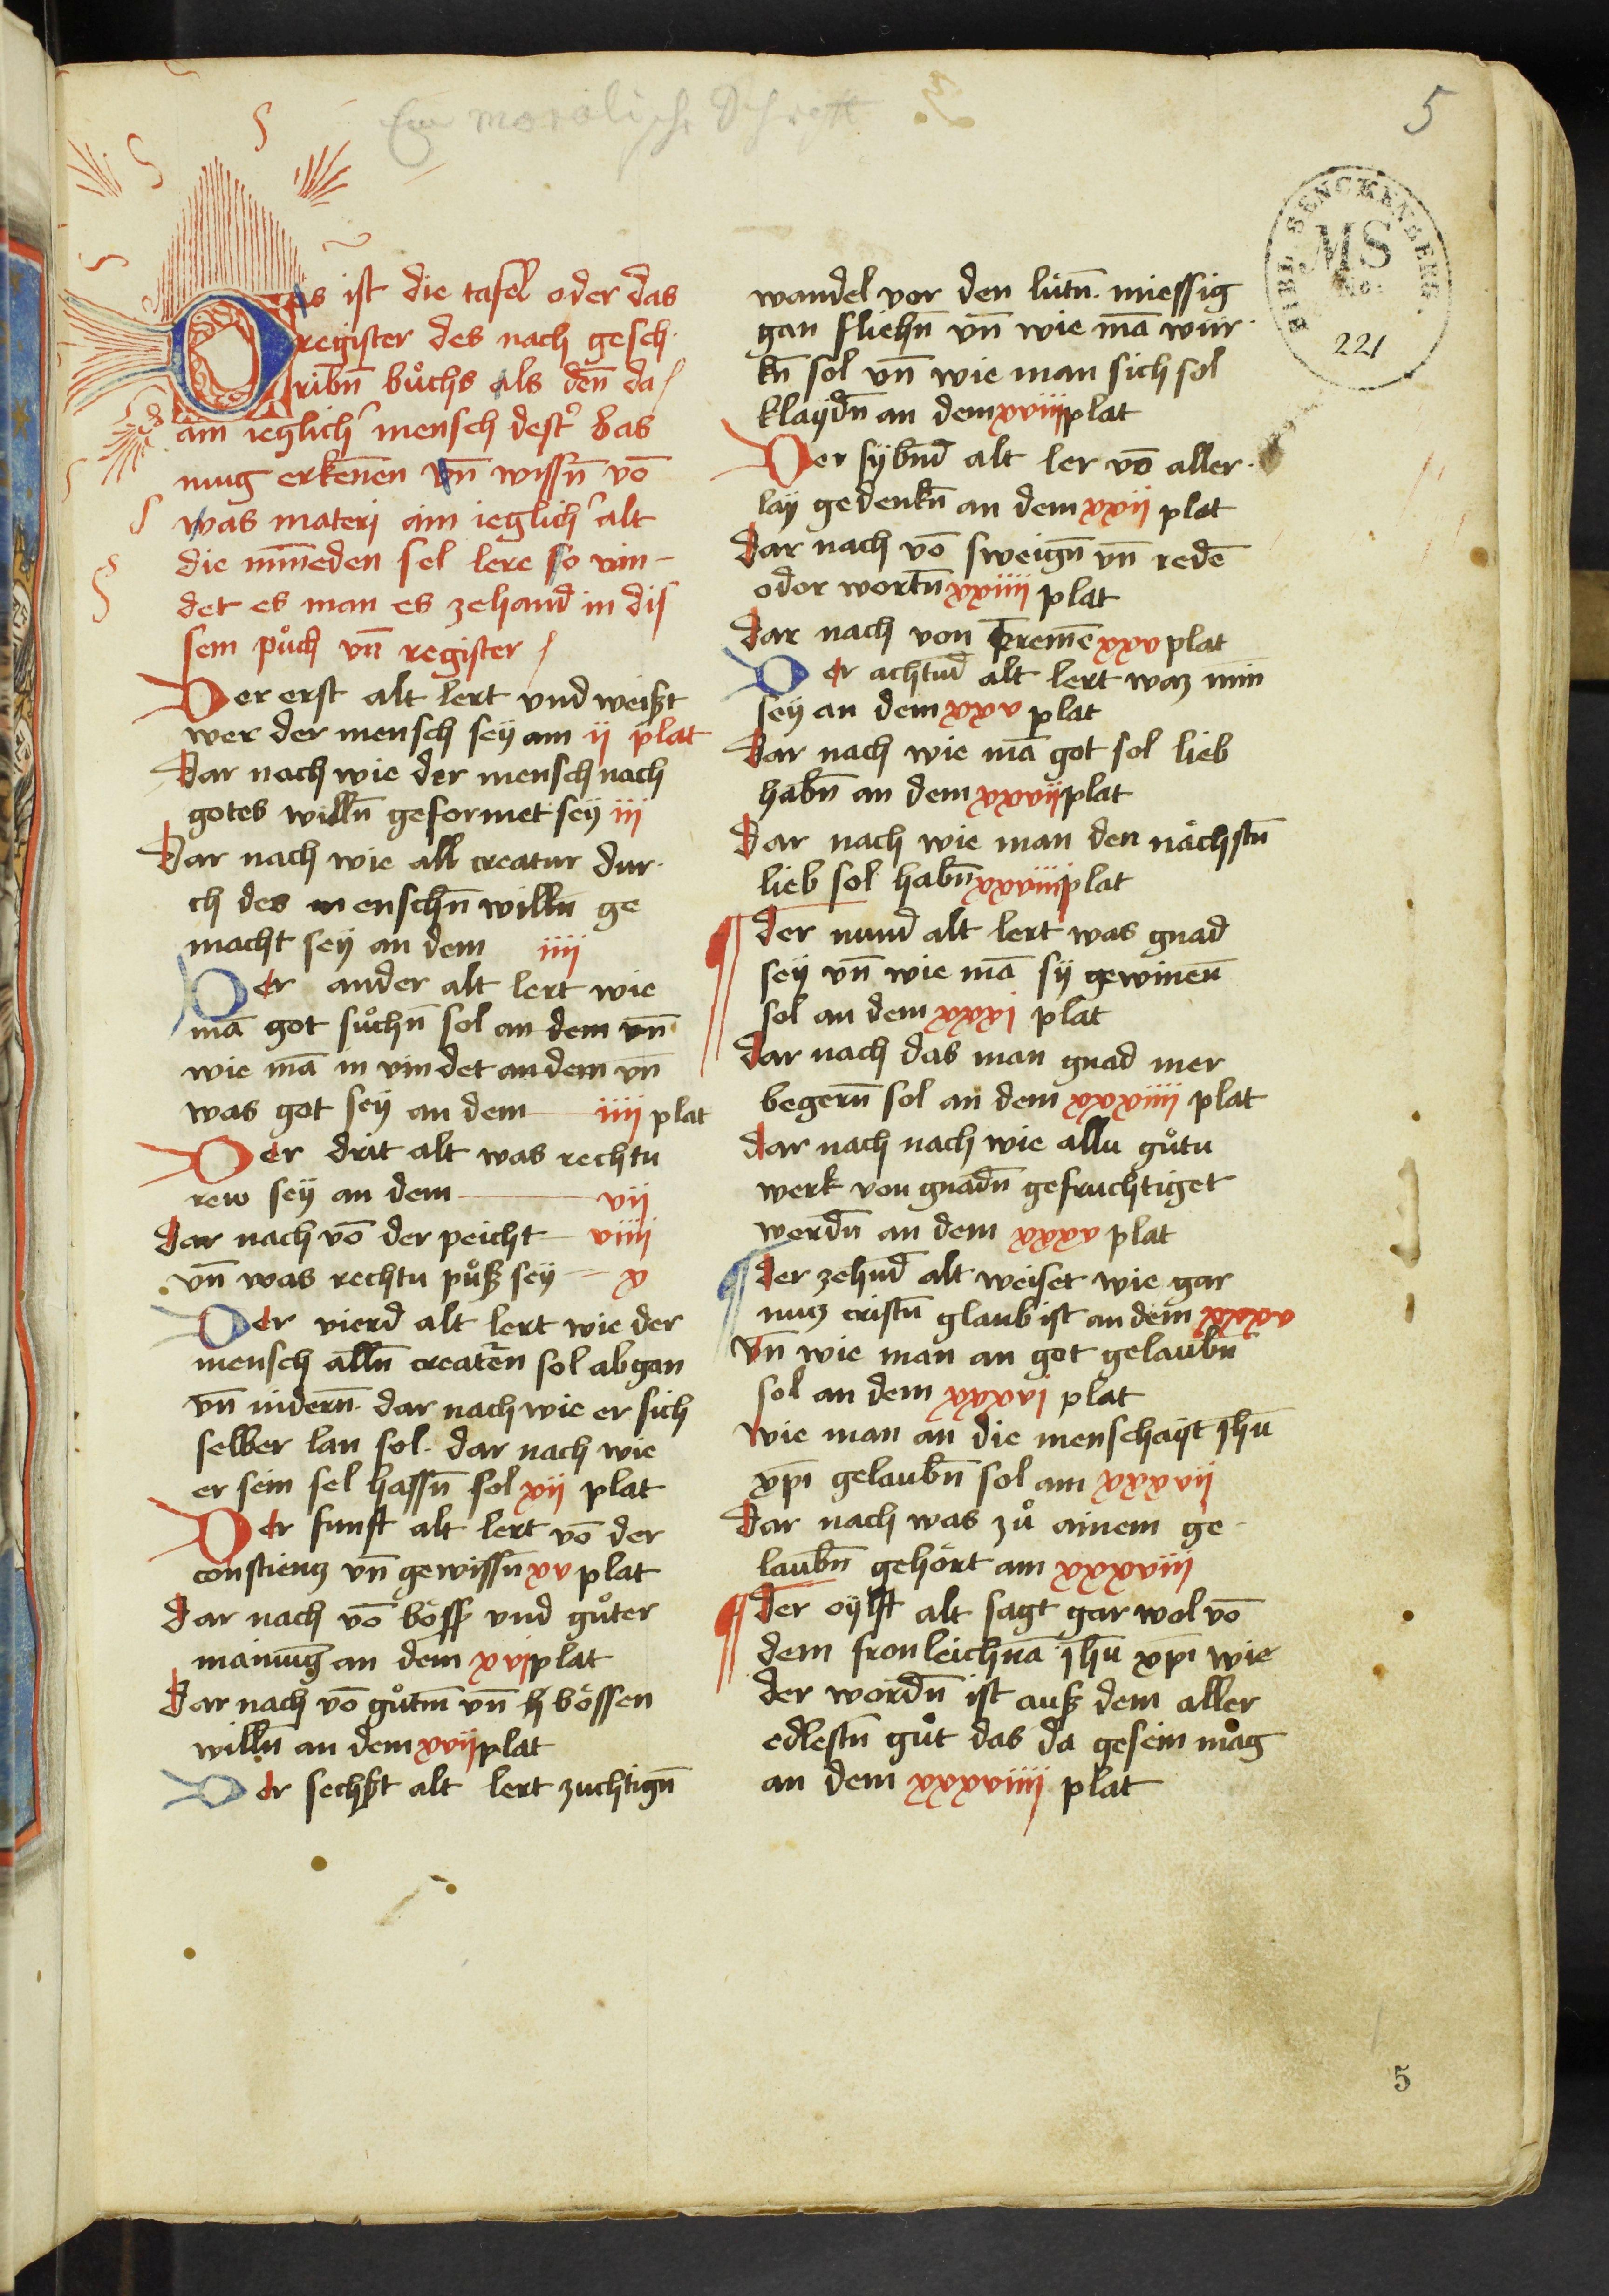 Ein moralische Schrifft
5
BIBL. SENCKENBERG.
MS
No:
221
Das ist die tafel oder das
register des nach gesch
ribn̄ bůchs als den̄ da
ain ieglich mensch dest̾ bas
mug erkenen vn̄ wissn̄ vō
was materi ain ieglich̾ alt
die mīneden sel lere so vin
det es man es zehand in dis
sem pu̇ch vn̄ register
Der erst alt lert vnd weißt
wer der mensch sey am ij plat
Dar nach wie der mensch nach
gotes willn̄ geformet sey iij
Dar nach wie all creatur dur
ch des menschn̄ willn̄ ge
macht sey an dem iiij
Der ander alt lert wie
mā got sůchn̄ sol an dem vn̄
wie mā in vindet an dem vn̄
was got sey an dem iiij plat
Der drit alt was rechtu
rew sey an dem vij
Dar nach vō der peicht viiij
vn̄ was rechtu půß sey x
Der vierd alt lert wie der
mensch alln̄ creatēn sol abgan
vn̄ nidern̄. dar nach wie er sich
selber lan sol. dar nach wie
er sein sel hassn̄ sol xij plat
Der funft alt lert vō der
conscientz vn̄ gewissn̄ xv plat
Dar nach vō böss̾ vnd gůter
mainūg an dem xvj plat
Dar nach vō gůtm̄ vn̄ h bössen
willn̄ an dem xvij plat
Der sechßt alt lert zuchtign̄
wandel vor den lütn̄. miessig
gan fliehn̄ vn̄ wie mā wür
kn̄ sol vn̄ wie man sich sol
klaydn̄ an dem xviiij plat
Der sybn̄d alt ler vō aller
lay gedenkn̄ an dem xxij plat
Dar nach vō sweign̄ vn̄ redē
odor wortn̄ xxiiij plat
Dar nach von premē xxv plat
Der achtud alt lert waz min̄
sey an dem xxv plat
Dar nach wie mā got sol lieb
habn̄ an dem xxvij plat
Dar nach wie man den nächstn̄
lieb sol habn̄ xxviiij plat
Der nund alt lert was gnad
sey vn̄ wie mā sy gewinen̄
sol an dem xxxj plat
Dar nach das man gnad mer
begern̄ sol an dem xxxiiij plat
Dar nach nach wie allu gůtu
werk von gnadn̄ gefruchtiget
werdn̄ an dem xxxv plat
Der zehnd̄ alt weiset wie gar
nutz cristn̄ glaub ist an dem
vn̄ wie man an got gelaubn̄
sol an dem xxxvj plat
Wie man an die menschayt ihū
xp̄i gelaubn̄ sol am xxxvij
Dar nach was zů ainem ge
laubn̄ gehört am xxxviij
Der oylft alt sagt gar wol vō
dem fronleichnā ihū xp̄i wie
der wordn̄ ist auß dem aller
edlestn̄ gůt das da gesein mag
an dem xxxviiij plat
5